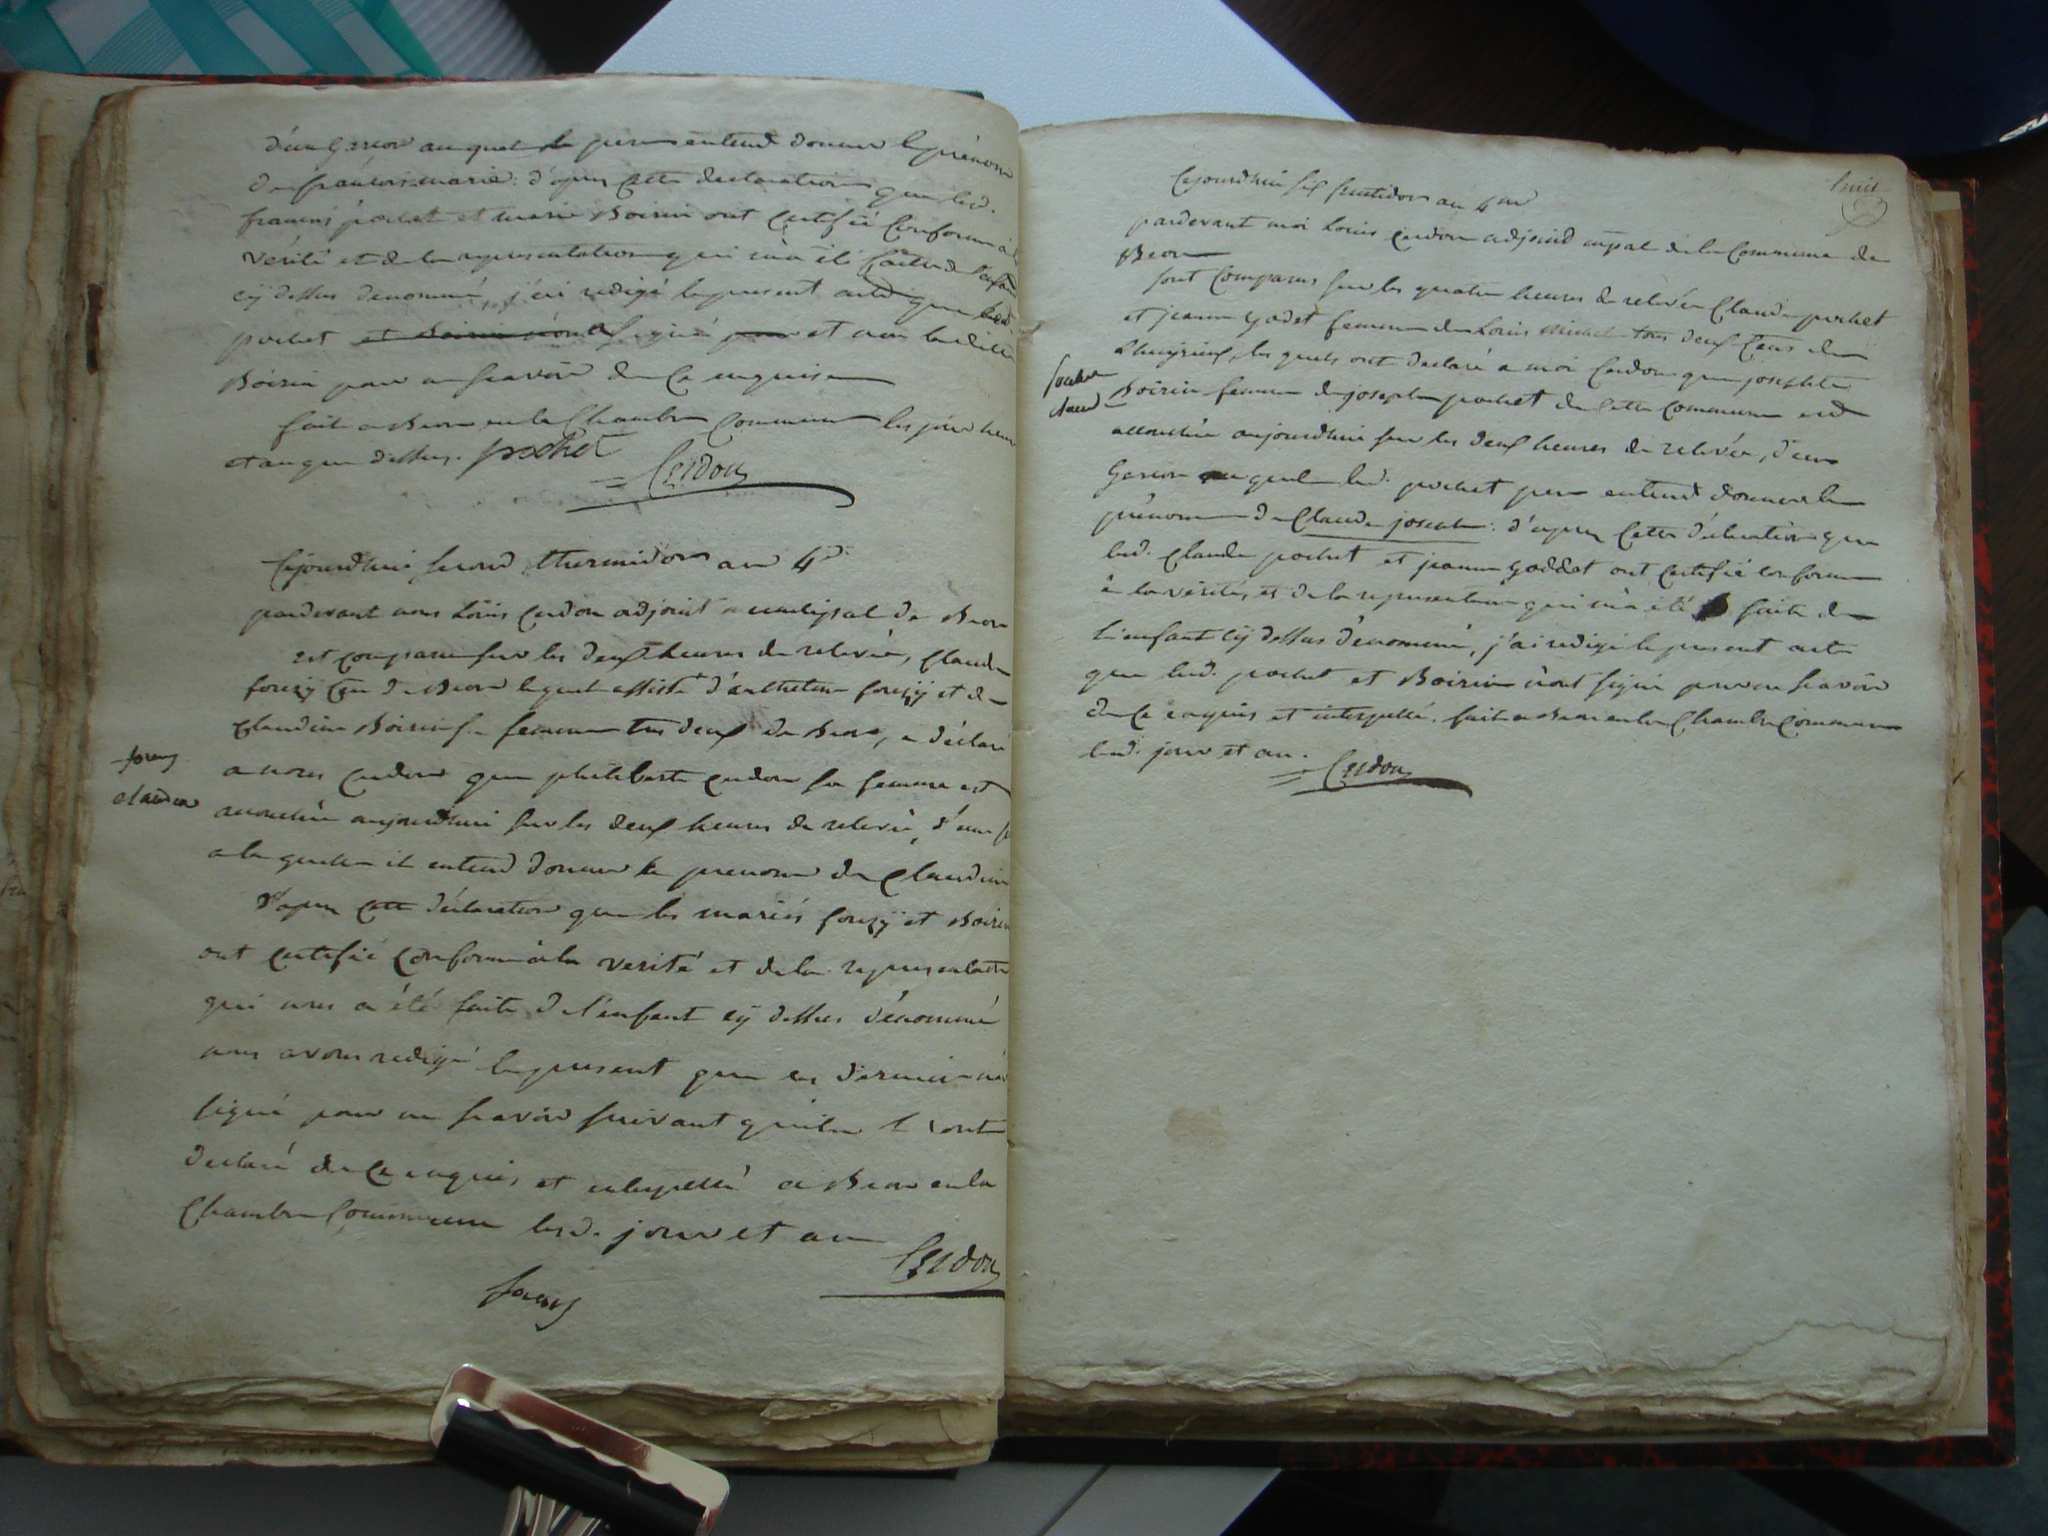 d'un Garçon auquel le pere entend donner le prénom
de françois marie: d'apres cette declaration que led.
francois pochet et marie Boirin ont certifié conforme à la
vérité et de la representation qui m'a été faite de l'enfant
cÿ dessus denommé, j'ai redigé le present acte que led.
pochet et Boirin n'ont signé et non laditte
Boirin pour ne scavoir de ce enquise
fait a Beon en la Chambre Commune les jour heure
et an que dessus. pochet
Cerdon
Cejourdhui second thermidor an 4e
pardevant nous Louis Cerdon adjoint municipal de Beon
est comparu sur les deux heures de relevée, Claude
forezÿ de Beon lequel assisté d'anthelme forezÿ et de
Claudine Boirin sa femme tous deux de Beon, a déclaré
a nous Cerdon que philiberte Cerdon sa femme est
accouchée aujourdhui sur les deux heures de relevée, d'une
a la quelle il entend donner le prenom de Claudine
D'apres cette déclaration que les mariés forezÿ et Boirin
ont certifié conforme à la verité et de la representation
qui nous a été faite de l'enfant cÿ dessus dénommé
nous avons redigé le present que ces derniers n'ont
signé pour ne scavoir suivant qu'ils l'ont
declaré de ce enquis, et interpellé a Beon en la
Chambre Commune lesd. jour et an
Cerdon
forezÿ
forezÿ
claudine
huit
Cejourdhui six fructidor an 4me
pardevant moi Louis Cerdon adjoint mpal de la Commune de
Beon
sont comparus sur les quatre heures de relevée Claude pochet
et jeanne godet femme de Louis michel tous deux de
Lhuyrieux, les quels ont declaré a moi Cerdon que josephte
Boirin femme de joseph pochet de cette commune est
accouchée aujourdhui sur les deux heures de relevée, d'un
Garçon au quel led. pochet pere entend donner le
prénom de Claude joseph: d'apres cette déclaration que
led. Claude pochet et jeanne goddet ont certifié conforme
à la vérité, et de la representation qui m'a été faite de
l'enfant cÿ dessus dénommé, j'ai redigé le present acte
que led. pochet et Boirin n'ont signé pour ne scavoir
de ce enquis et interpellé. fait a Beon en la Chambre Commune
led. jour et an.
Cerdon
pochet
claude